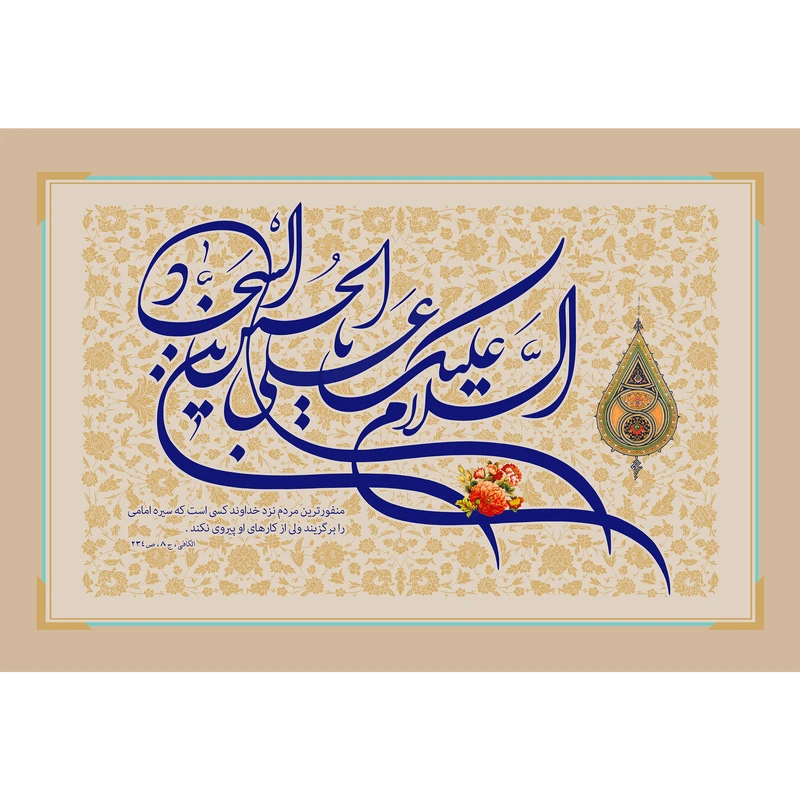 السلام علیک یا علی بن الحسین السجاد
منفورترین مردم نزد خداوند کسی است که سیره امامی
را برگزیند ولی از کارهای او پیروی نکند .
الکافی، ج ۸، ص ۲۳٤